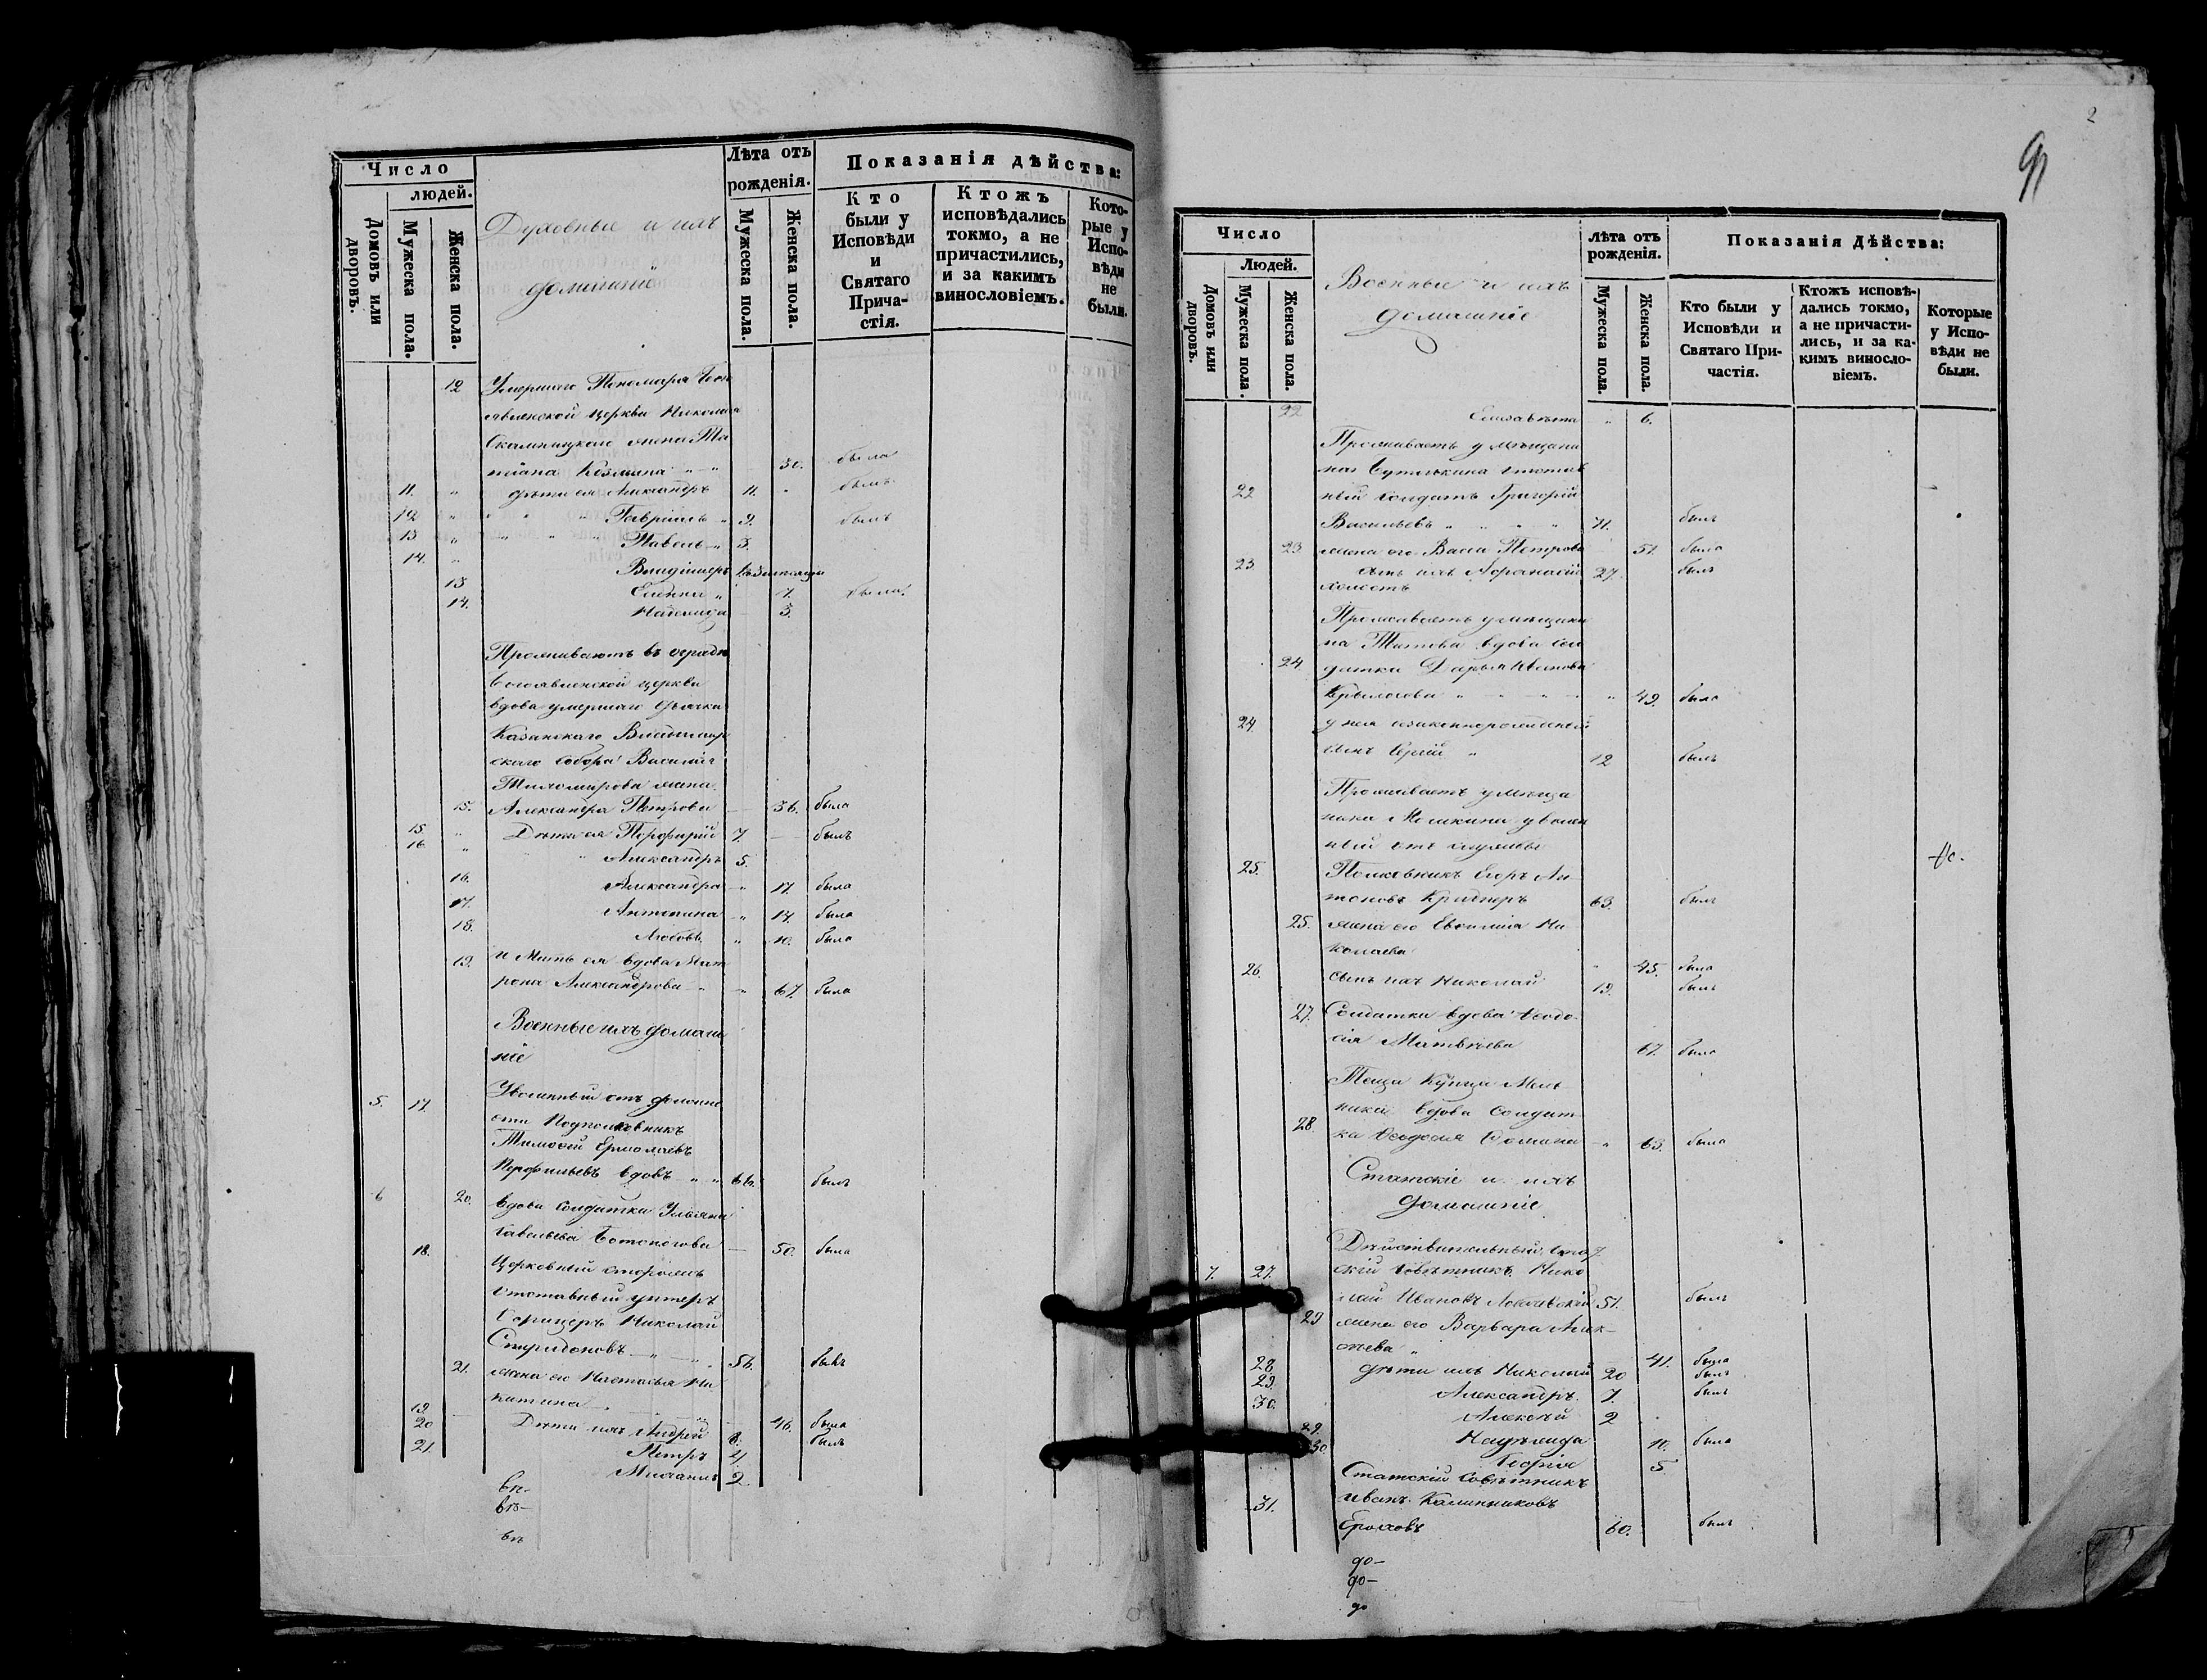 Число
людей.
Домовъ или дворовъ.
Мужеска пола.
Женска пола.
Духовные и ихъ
домашніе
Лѣта отъ рожденія.
Мужеска пола.
Женска пола.
Показанія дѣйства:
Кто были у Исповѣди и Святаго Прича-стія.
Ктожъ исповѣдались токмо, а не причастились, и за какимъ винословіемъ.
Кото-рые у Испо-вѣди не были.
12 Умершаго Пономаря Бого
явленской церкви Николая
жена Та
тіана Козмина 30. была
11. дѣти ея Александръ 11. былъ
12 Гавріилъ 9. былъ
13 Павелъ 3.
14. Владиміръ
13 7. была
14. Надежда 3.
Проживаютъ въ оградѣ
Богоявленской церкви
вдова умершаго Дьячка
Казанскаго Владимир
скаго Собора Василія
Тихомирова жена
15. Александра Петрова 36. была
15 Дѣти ея Порфирій 7. былъ
16 Александръ 5.
16. Александра 17. была
17. Антонина 14. была
18. Любовь 10. была
19. и Мать ея вдова Мат
рона Александрова 67. была
Военные ихъ домаш
ніе
5. 17. Уволенный отъ
Подполковникъ
Тимофей Ермолаевъ
Перфильевъ вдовъ 66. былъ
6 20. вдова Солдатка Ульяна
Савельева 50. была
18. Церковный сторожъ
отставный унтеръ
Офицеръ Николай
Спиридоновъ 56. былъ
21. жена его Настасья Ни
китина 46. была
19. Дѣти ихъ Андрей 8. былъ
20 Петръ 4.
21. Михаилъ 2
въ-
въ-
въ
2
91
Число
Людей.
Домовъ или дворовъ.
Мужеска пола.
Женска пола.
Военные и ихъ
домашніе
Лѣта отъ рожденія.
Мужеска пола.
Женска пола.
Показанія Дѣйства:
Кто были у Исповѣди и Святаго При-частія.
Ктожъ исповѣ-дались токмо, а не причасти-лись, и за ка-кимъ виносло-віемъ.
Которые у Испо-вѣди не были.
22 Елизавета 6.
Проживаетъ у мѣщани
на отстав
22 ный солдатъ Григорій
Васильевъ 71. былъ
23 жена его Васса Петрова 51. была
23. сынъ ихъ Афанасій 27. былъ
холостъ
Проживаетъ у мѣщани
на Титова вдова сол
24 датка Дарья Иванова
Крылосова 49. была
24 у нея незаконнорожденный
сынъ Сергій 12 былъ
Проживаетъ у мѣща
нина уволен
ный отъ службы
25. Полковникъ Егоръ Ан
тоновъ 63. былъ
25. жена его Евгенія Ни
колаева 45. была
26. сынъ ихъ Николай 19. былъ
27. Солдатка вдова Ѳеодо
сія Матвѣева 67. была
Теща Купца Мель
вдова Солдат
28. ка Ѳеодосія 63. была
Статскіе и ихъ
домашніе
Дѣйствительный Стат
7. 27. скій Совѣтникъ Нико
лай Ивановъ Лобачевскій 51. былъ
29 жена его Варвара Алек
сѣева 41. была
28 дѣти ихъ Николай 20 былъ
29. Александръ 7. былъ
30. Алексѣй 2
29. Надежда 10. была
30. Софія 5.
Статскій Совѣтникъ
31. Иванъ Калинниковъ
Ероховъ 60. былъ
до-
до-
до